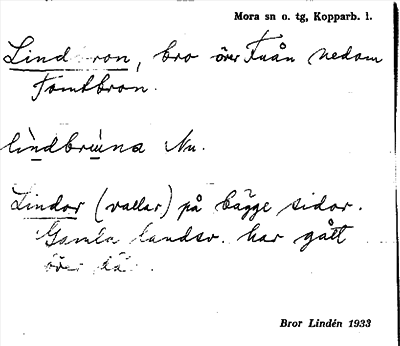 Mora sn o. tg, Kopparb. l.
Lind ron, bro över Fuån nedom
Tomtbron.
lìndbruna Nu.
Lindor (vallar) på bägge sidor.
Gamla landsv. har gått
över
Bror Lindén 1933